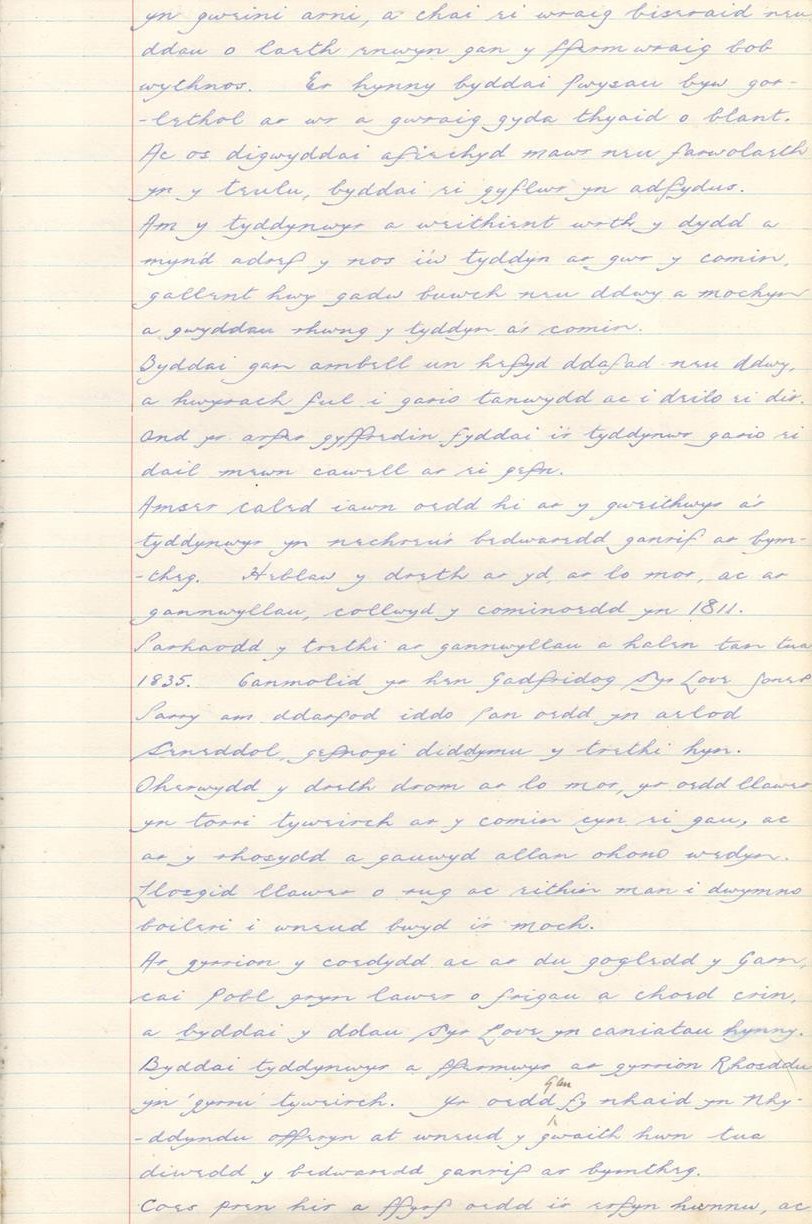 yn gweini arni, a chai ei wraig biseraid neu
ddau o laeth enwyn gan y fferm wraig bob
wythnos. Er hynny byddai pwysau byw gor-
-lethol ar wr a gwraig gyda thyaid o blant.
Ac os digwyddai afiechyd mawr neu farwolaeth
yn y teulu, byddai ei gyflwr yn adfydus.
Am y tyddynwyr a weithient wrth y dydd a
mynd adref y nos i'w tyddyn ar gwr y comin,
gallent hwy gadw buwch neu ddwy a mochyn
a gwyddau rhwng y tyddyn a'r comin.
Byddai gan ambell un hefyd ddafad neu ddwy,
a hwyrach ful i gario tanwydd ac i deilo ei dir.
Ond yr arfer gyffredin fyddai i'r tyddynwr gario ei
dail mewn cawell ar ei gefn.
Amser caled iawn oedd hi ar y gweithwyr a'r
tyddynwyr yn nechreu'r bedwaredd ganrif ar bym-
-theg. Heblaw y dreth ar yd, ar lo mor, ac ar
gannwyllau, collwyd y cominoedd yn 1811.
Parhaodd y trethi ar gannwyllau a halen tan tua
1835. Canmolid yr hen Gadfridog Syr Love Jones
Parry am ddarfod iddo pan oedd yn aelod
Seneddol, gefnogi diddymu y trethi hyn.
Oherwydd y dreth drom ar lo mor, yr oedd llawer
yn torri tyweirch ar y comin cyn ei gau, ac
ar y rhosydd a gauwyd allan ohono wedyn.
Llosgid llawer o rug ac eithin man i dwymno
boileri i wneud bwyd i'r moch.
Ar gyrrion y coedydd ac ar du gogledd y Garn,
cai pobl gryn lawer o frigau a choed crin,
a byddai y ddau Syr Love yn caniatau hynny.
Byddai tyddynwyr a ffermwyr ar gyrrion Rhosddu
yn 'gyrru' tyweirch. Yr oedd gan fy nhaid yn Nhy-
-ddyndu offeryn at wneud y gwaith hwn tua
diwedd y bedwaredd ganrif ar bymtheg.
Coes pren hir a ffyrf oedd i'r erfyn hwnnw, ac